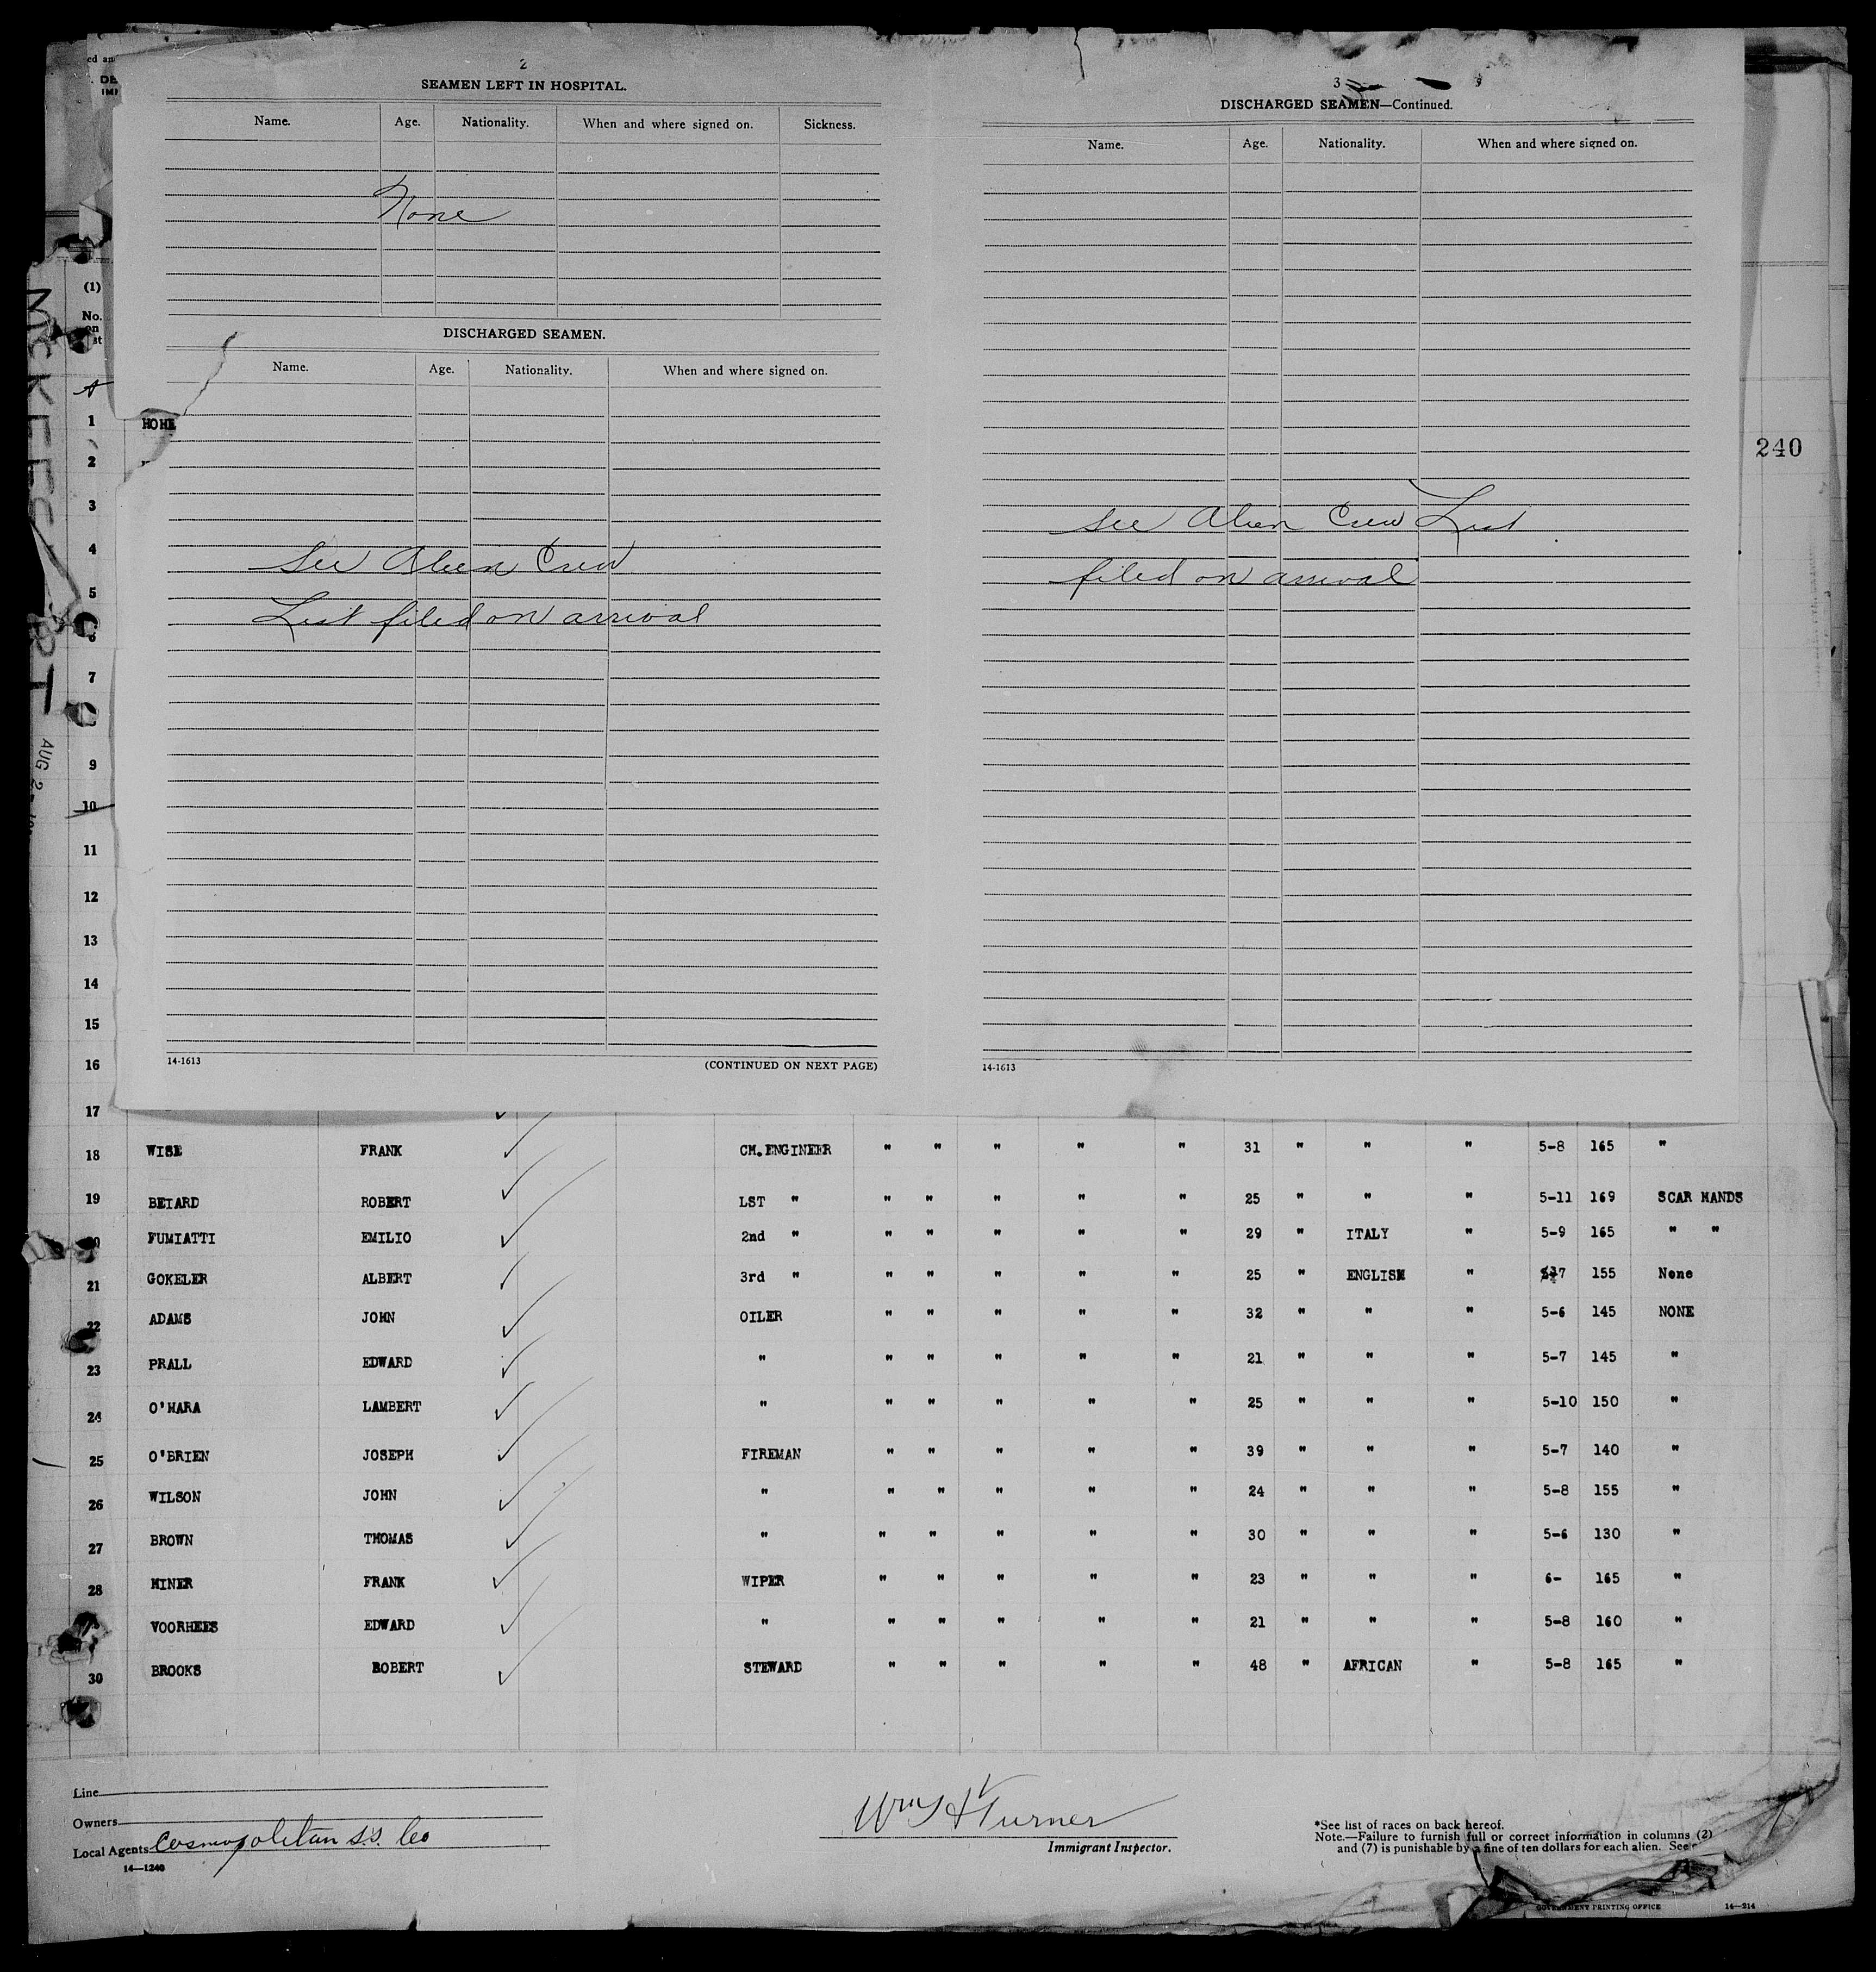 2
SEAMEN LEFT IN HOSPITAL.
Name. Age. Nationality. When and where signed on. Sickness.
None
DISCHARGED SEAMEN.
Name. Age. Nationality. When and where signed on.
See Alien Crew
List filed on arrival
14-1613 (CONTINUED ON NEXT PAGE)
3
DISCHARGED SEAMEN—Continued.
Name. Age. Nationality. When and where signed on.
See Alien Crew List
filed on arrival
14-1613
240
(1)
No.
on
st
AUG 2
1 HOHE
2
3
4
5
6
7
9
10
11
12
13
14
15
16
17
18 WISE FRANK CH.ENGINEER " " " " " 31 " " " 5-8 165 "
19 BEIARD ROBERT LST " " " " " " 25 " " " 5-11 169 SCAR HANDS
FUMIATTI EMILIO 2nd " " " " " " 29 " ITALY " 5-9 165 " "
21 GOKELER ALBERT 3rd " " " " " " 25 " ENGLISH " 7 155 None
22 ADAMS JOHN OILER " " " " " 32 " " " 5-6 145 NONE
23 PRALL EDWARD " " " " " " 21 " " " 5-7 145 "
24 O'HARA LAMBERT " " " " " " 25 " " " 5-10 150 "
25 O'BRIEN JOSEPH FIREMAN " " " " " 39 " " " 5-7 140 "
26 WILSON JOHN " " " " " " 24 " " " 5-8 155 "
27 BROWN THOMAS " " " " " " 30 " " " 5-6 130 "
28 MINER FRANK WIPER " " " " " 23 " " " 6- 165 "
VOORHEES EDWARD " " " " " " 21 " " " 5-8 160 "
30 BROOKS ROBERT STEWARD " " " " " 48 " AFRICAN " 5-8 165 "
Line
Owners
Local Agents Cosmopolitan S.S. Co
14—1240
Wm H Turner
Immigrant Inspector.
*See list of races on back hereof.
Note.—Failure to furnish full or correct information in columns (2)
and (7) is punishable by a fine of ten dollars for each alien. See
GOVERNMENT PRINTING OFFICE 14—214